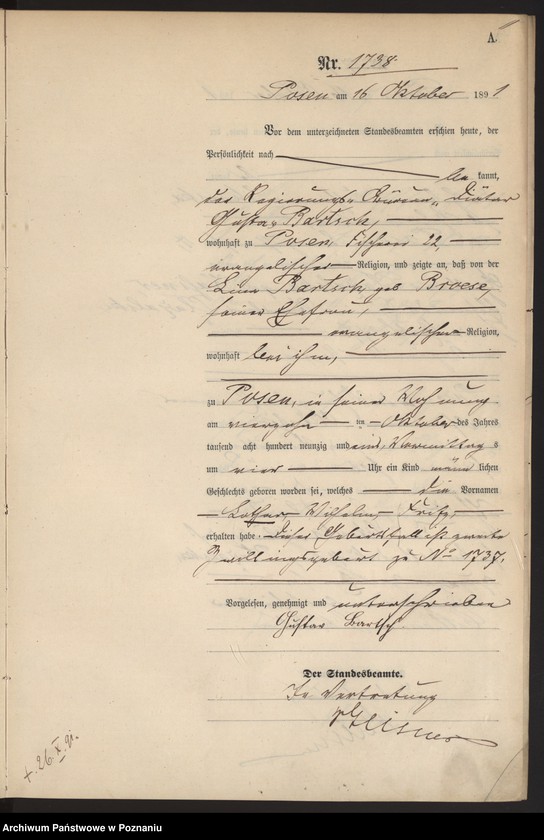 A.
Nr. 1738.
Posen am 16 Oktober 1891
Vor dem unterzeichneten Standesbeamten erschien heute, der
Persönlichkeit nach
be kannt,
der Regierungs-Büreau-Diätar
Gustav Bartsch,
wohnhaft zu Posen, Fischerei 22,
evangelischer Religion, und zeigte an, daß von der
Bartsch, geb Broese,
seiner Ehefrau,
evangelischer Religion,
wohnhaft bei ihm,
zu Posen, in seiner Wohnung
am vierzehn ten Oktober des Jahres
tausend acht hundert neunzig und eins, Vormittag s
um vier Uhr ein Kind männ lichen
Geschlechts geboren worden sei, welches die Vornamen
Lothar Wilhelm Fritz
erhalten habe. Dieser Geburtsfall ist zweite
Zwillingsgeburt zu No 1737.
Vorgelesen, genehmigt und unterschrieben
Gustav Bartsch.
Der Standesbeamte.
In Vertretung
+. 26. X 91.
Archiwum Państwowe w Poznaniu